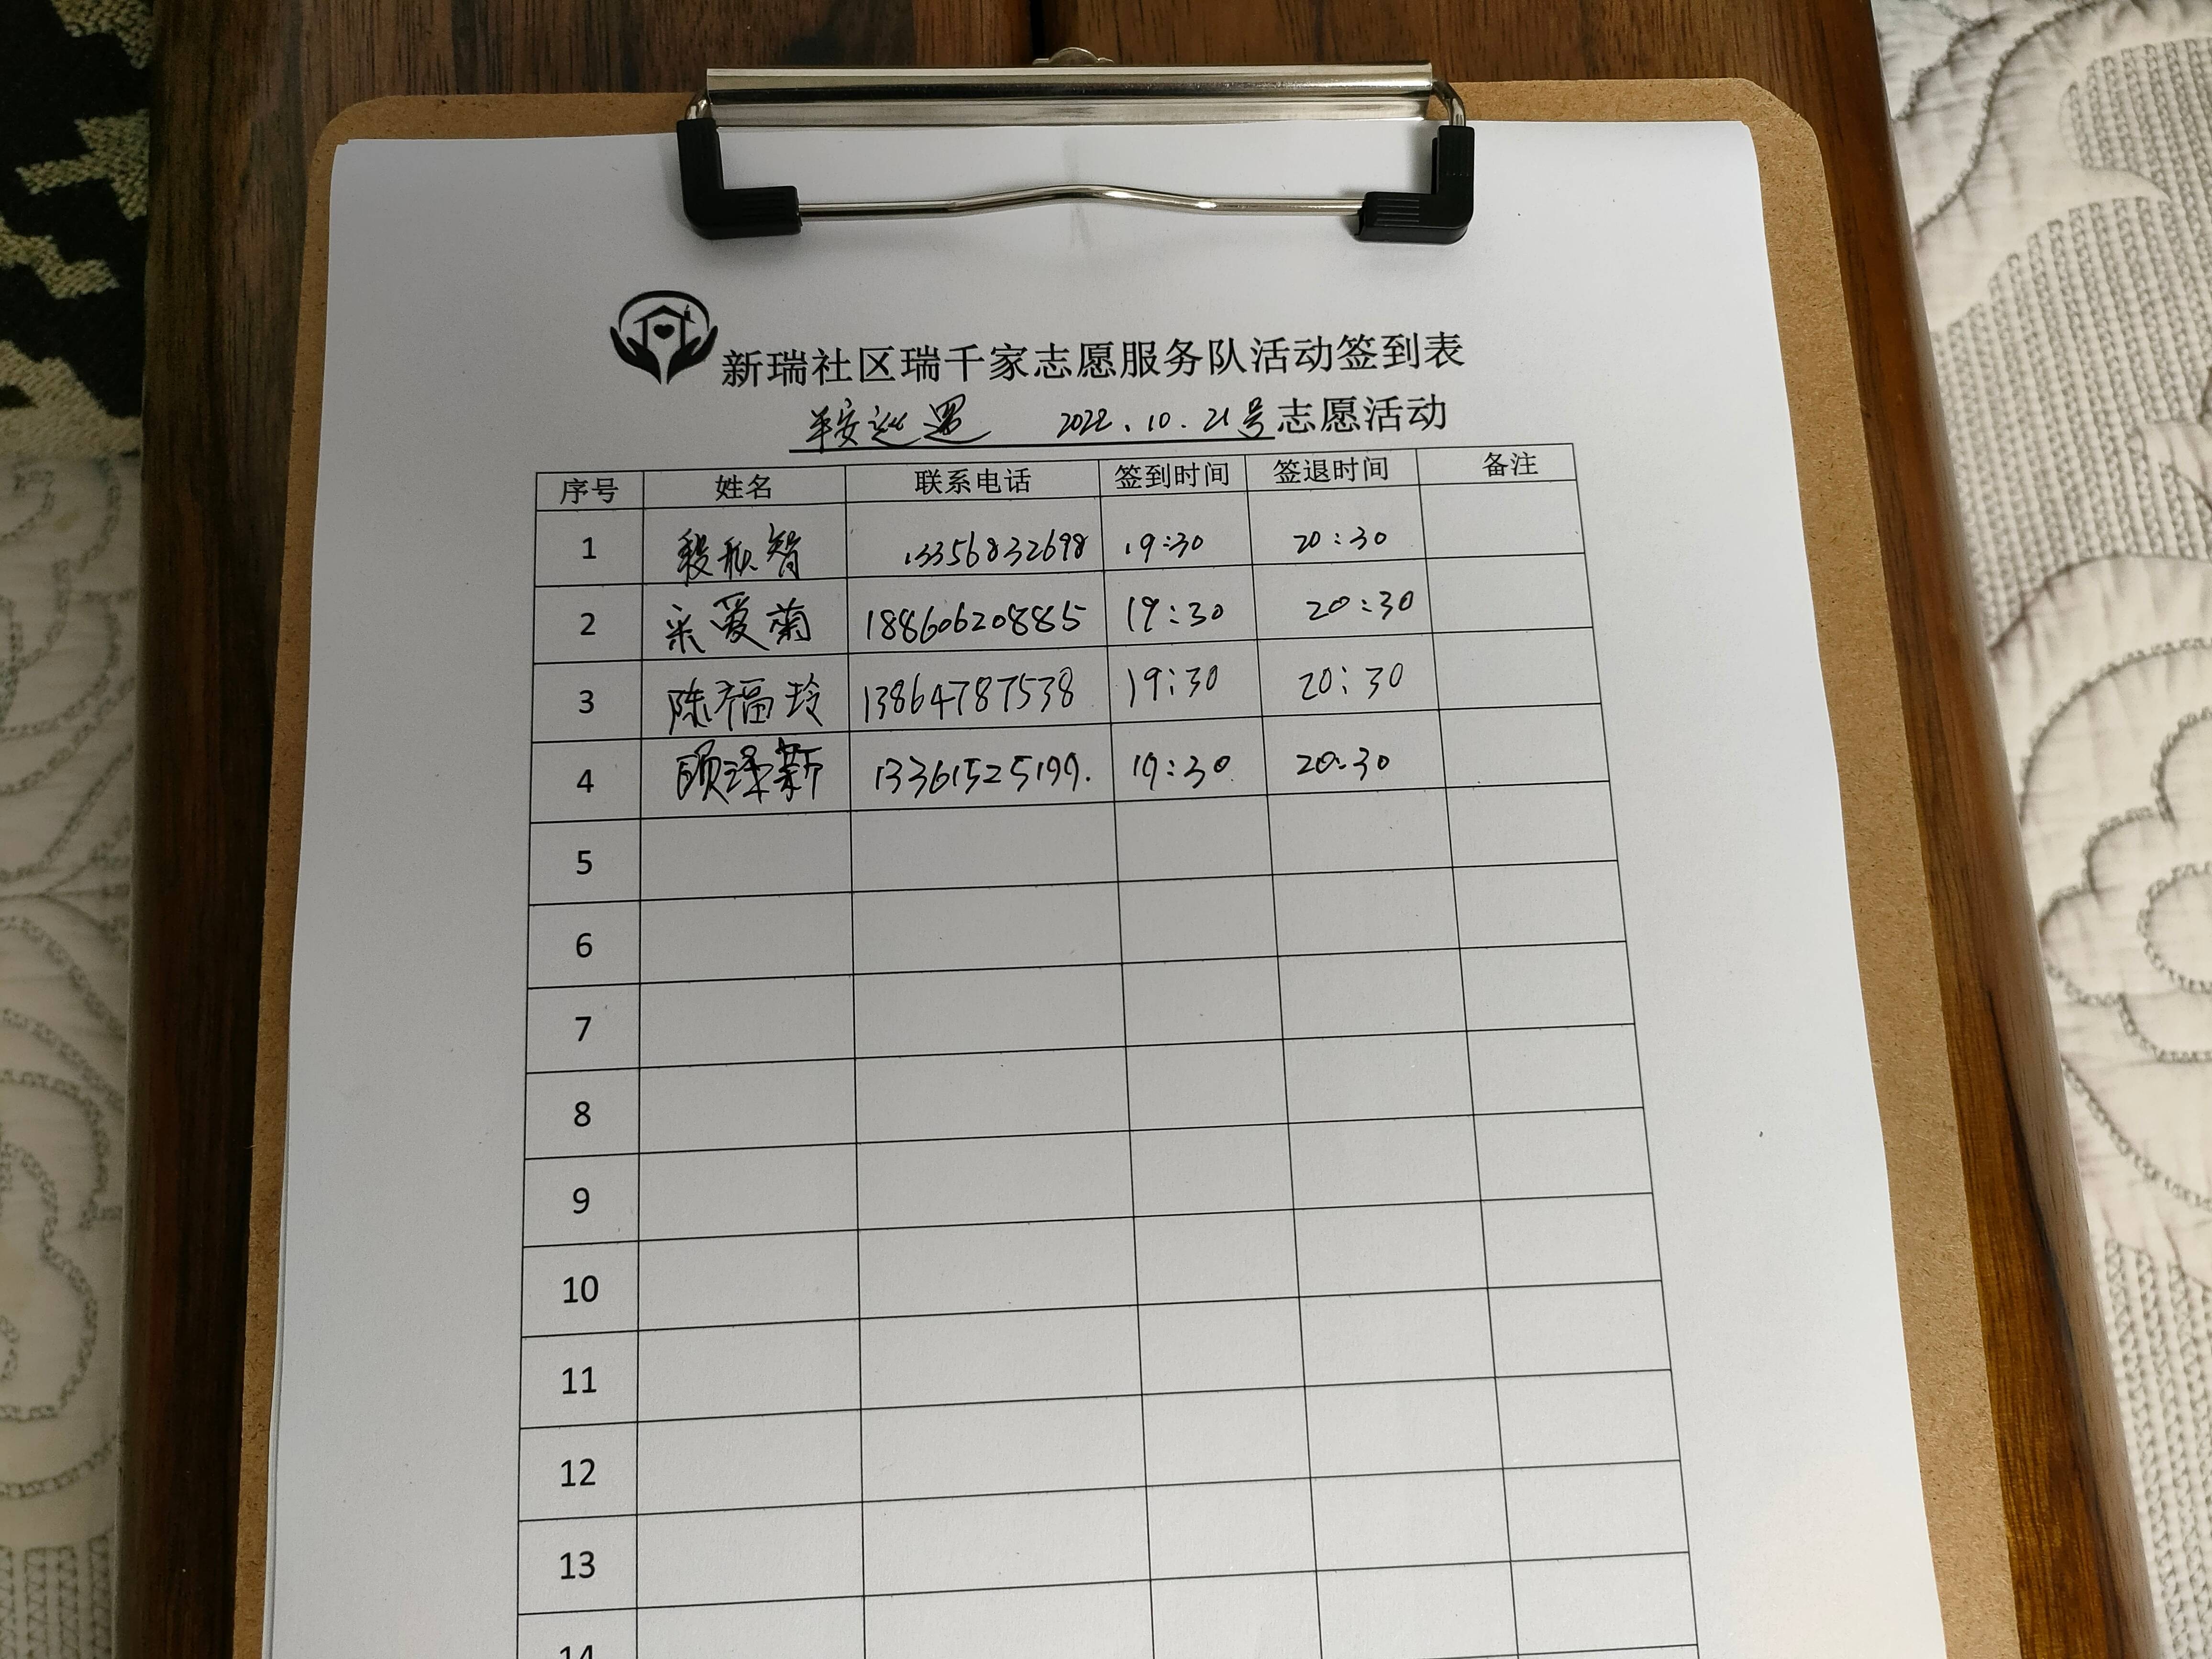 新瑞社区瑞千家志愿服务队活动签到表
平安巡逻 2022.10.21号志愿活动
序号 姓名 联系电话 签到时间 签退时间 备注
1 智 13356832698 19:30 20:30
2 采爱菊 18860620885 19:30 20:30
3 陈福玲 13864787538 19:30 20:30
4 顾泽新 13361525199. 19:30 20:30
5
6
7
8
9
10
11
12
13
14